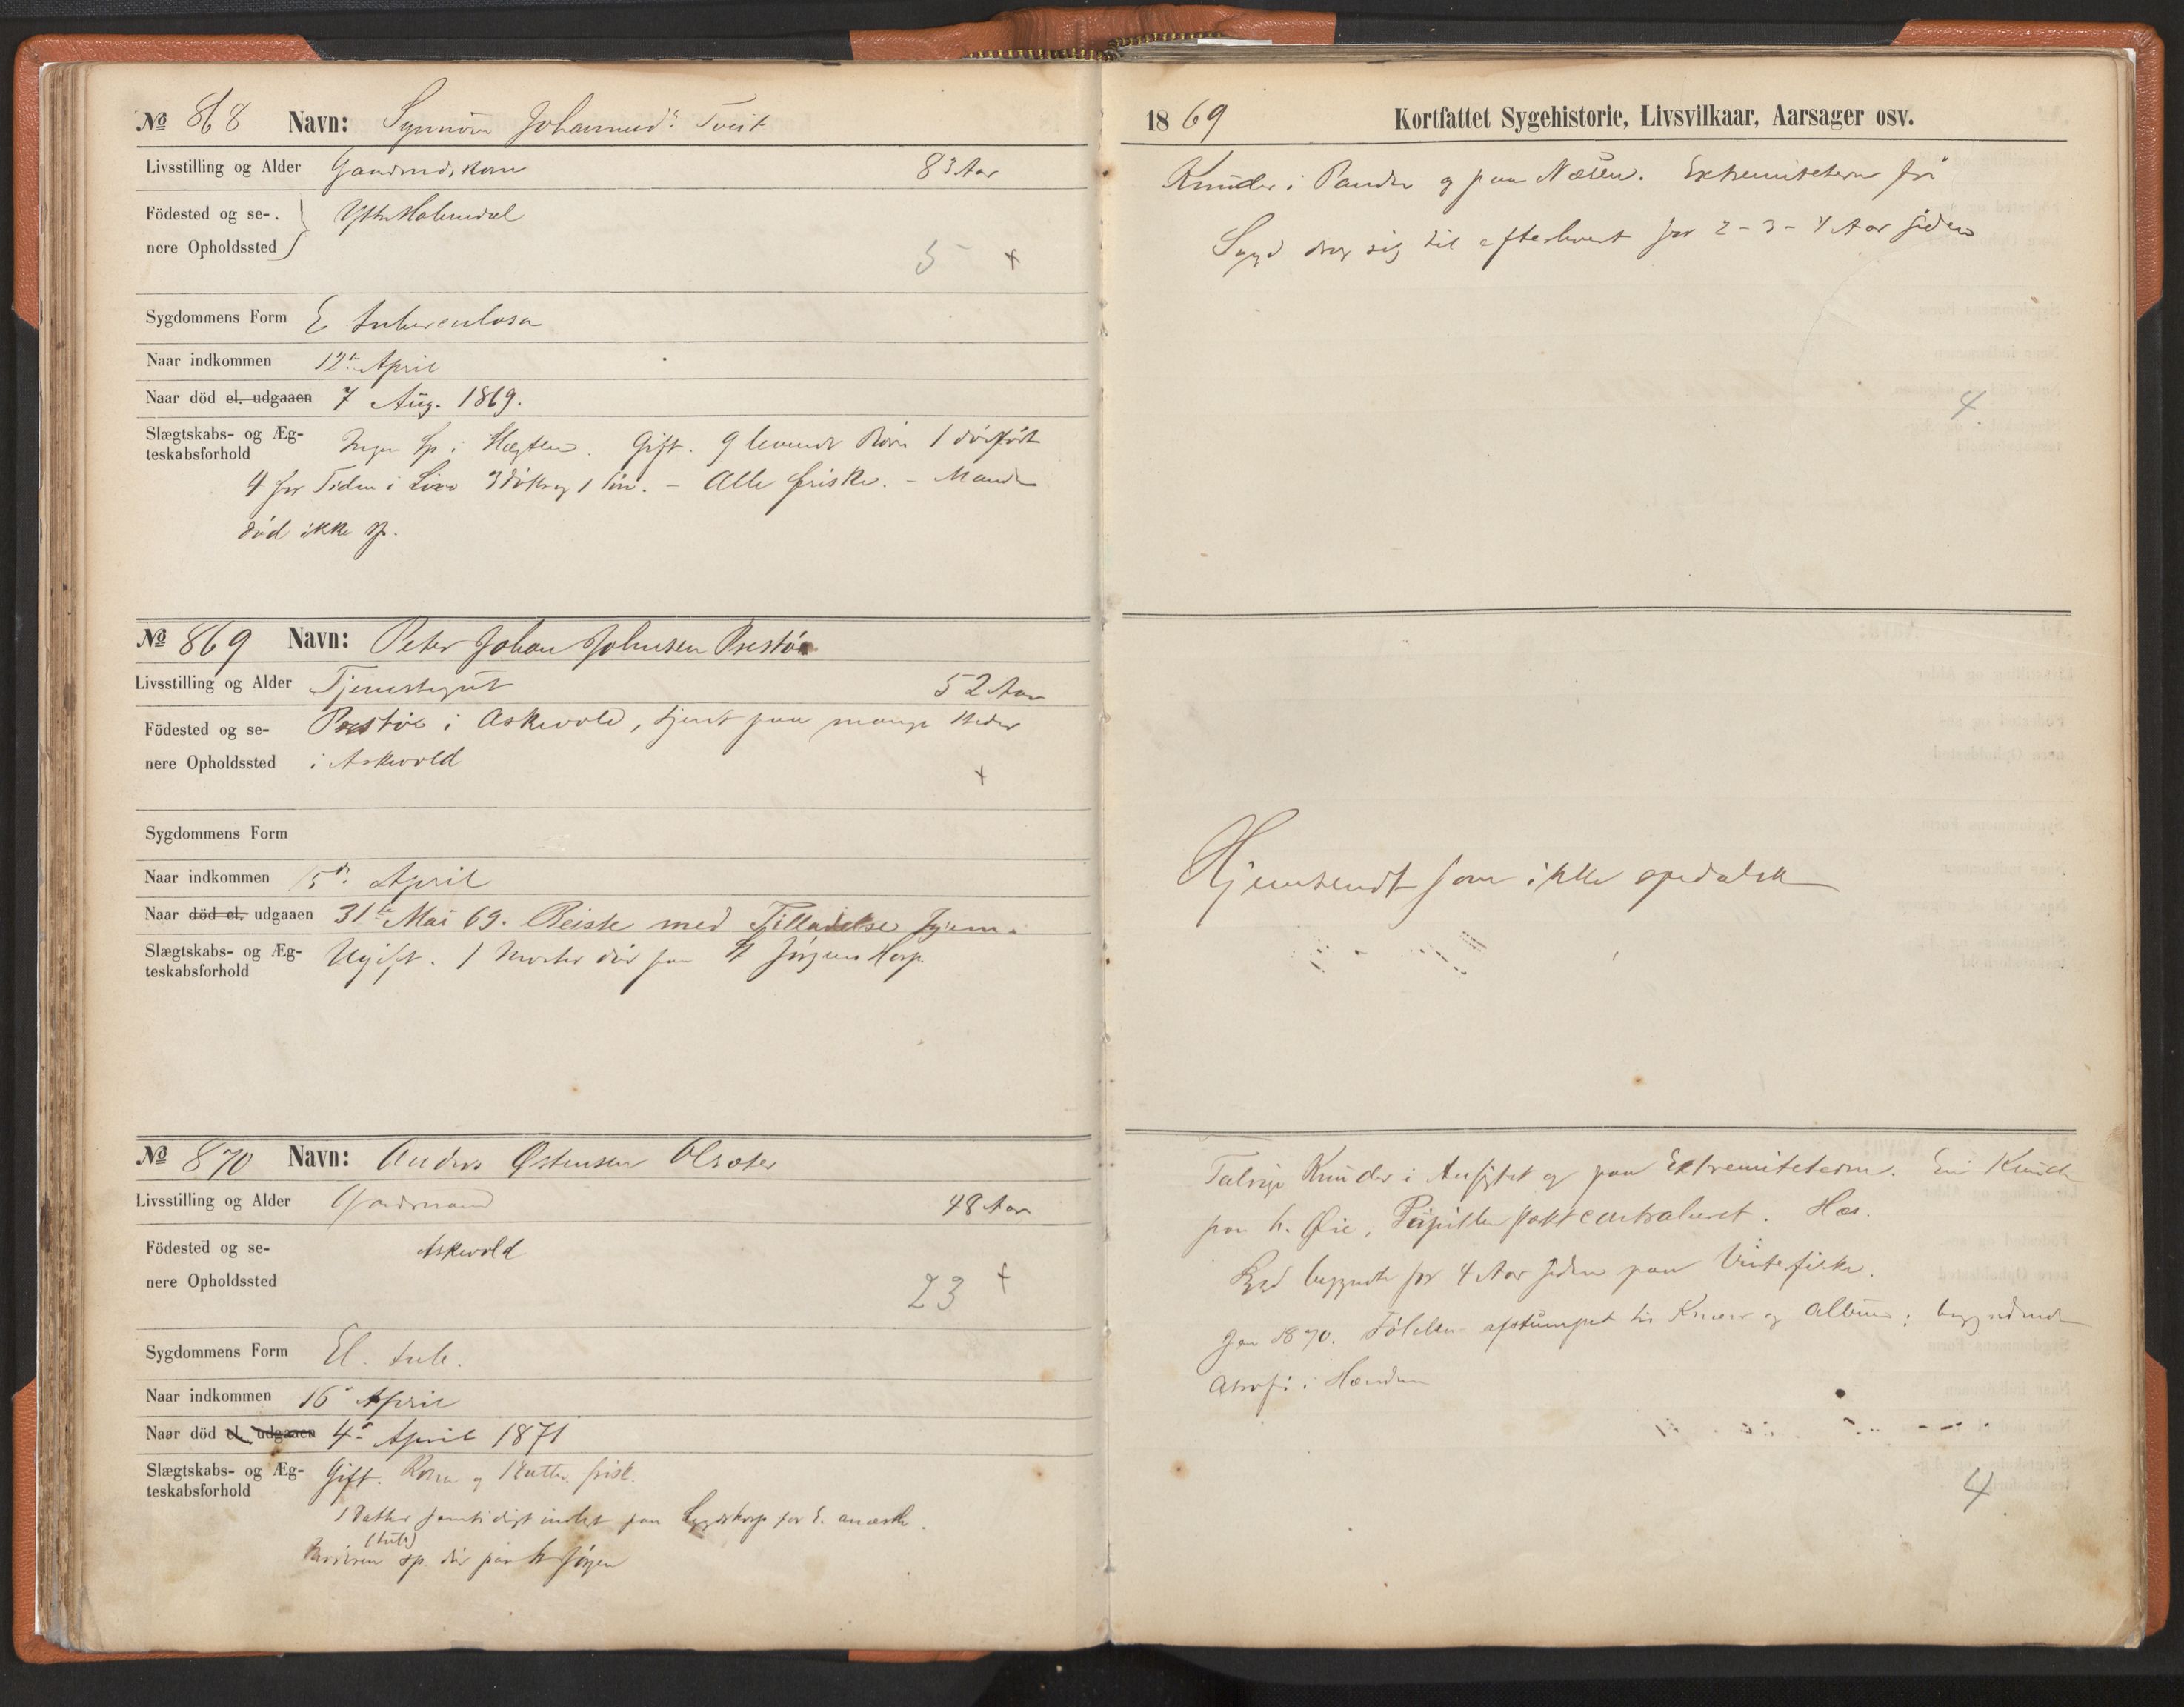 № 868 Navn: Synnöve Johannesdr Tveit
Livsstilling og Alder Gaardmdskone 83 Aar
Födested og se-. Yttre Holmedal
nere Opholdssted
5 +
Sygdommens Form E tuberculosa
Naar indkommen 12te April
Naar död el. udgaaen 7 Aug. 1869.
Slægtskabs- og Æg-
teskabsforhold Ingen Sp i Slægten. Gift. 9 levende Börn 1 dödfödt
4 for Tiden i Live 3 Dötre og 1 Sön. - Alle friske. - Manden
död ikke sp.
№ 869 Navn: Peter Johan Johnsen Prestöe
Livsstilling og Alder Tjenestegut 52 Aar
Födested og se- Prestöe i Askevold, tjent paa mange Steder
nere Opholdssted i Askevold
+
Sygdommens Form
Naar indkommen 15de April
Naar död el. udgaaen 31te Mai 69. Reiste med Tilladelse hjem.
Slægtskabs- og Æg-
teskabsforhold Ugift. 1 död paa St Jörgens Hosp.
№ 870 Navn: Anders Östensen
Livsstilling og Alder Gaardmand 48 Aar
Födested og se- Askevold
nere Opholdssted
23 +
Sygdommens Form El. tub.
Naar indkommen 16 April
Naar död el. udgaaen 4de April 1871
Slægtskabs- og Æg-
teskabsforhold Gift. Kone og 1 Datter frisk.
1 Datter samtidigt indlagt paa for E. anæsth.
(tub)
sp. död paa St Jörgen
1869 Kortfattet Sygehistorie, Livsvilkaar, Aarsager osv.
Knuder i Panden og paa Næsen. Extremiteterne fri
Sygd drog sig til efterhvert for 2-3-4 Aar siden
4.
Hjemsendt som ikke spedalsk
Talrige Knuder i Ansigtet og paa Extremiteterne. En Knude
paa h. Öie, Pupillen Hæs.
Sygd begyndte for 4 Aar siden paa Vinterfiske.
Jan 1870. Fölelsen afstumpet til Knæer og Albuer; begyndende
Atrofi i Hænderne
4